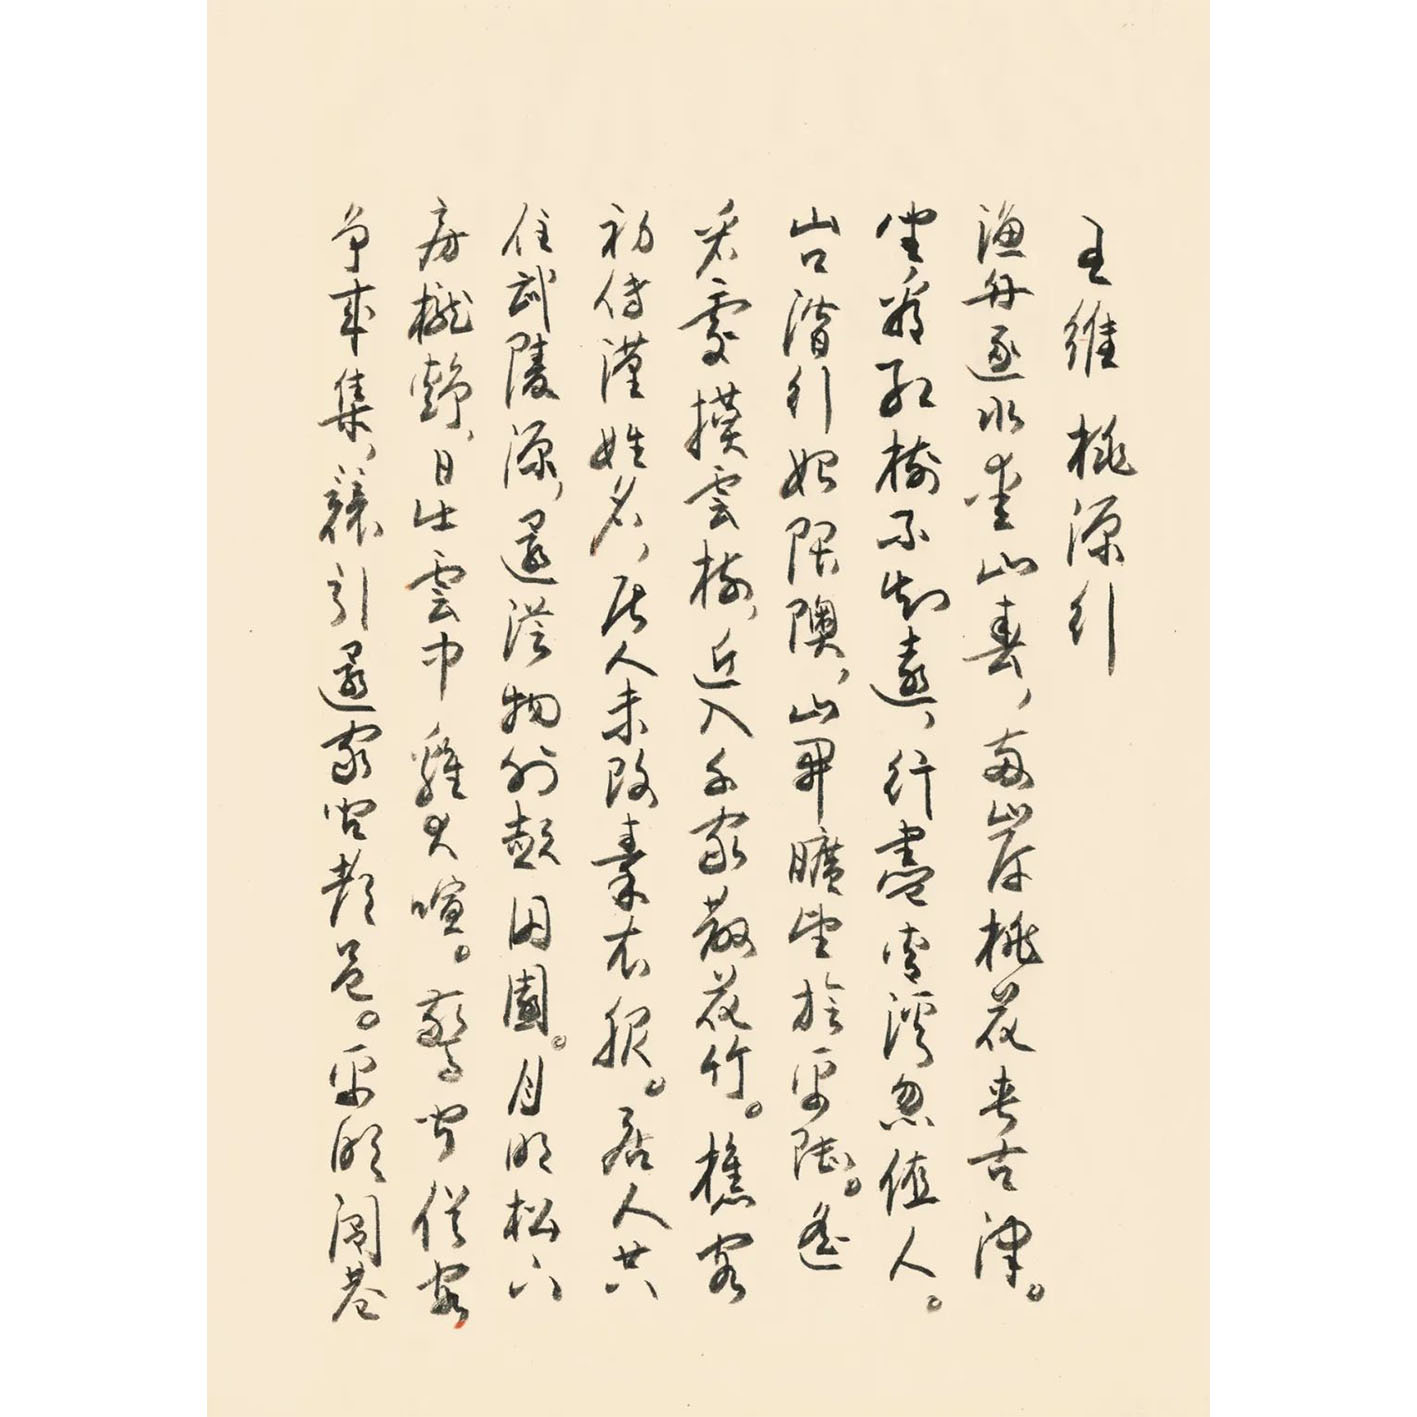 王維 桃源行
漁舟逐水愛山春，兩岸桃花夾古津。
坐看紅樹不知遠，行盡青溪忽值人。
山口潛行始隈隩，山開曠望旋平陸。遙
看一處攢雲樹，近入千家散花竹。樵客
初傳漢姓名，居人未改秦衣服。居人共
住武陵源，還從物外起田園。月明松下
房櫳靜，日出雲中雞犬喧。驚聞俗客
爭來集，競引還家問都邑。平明閭巷